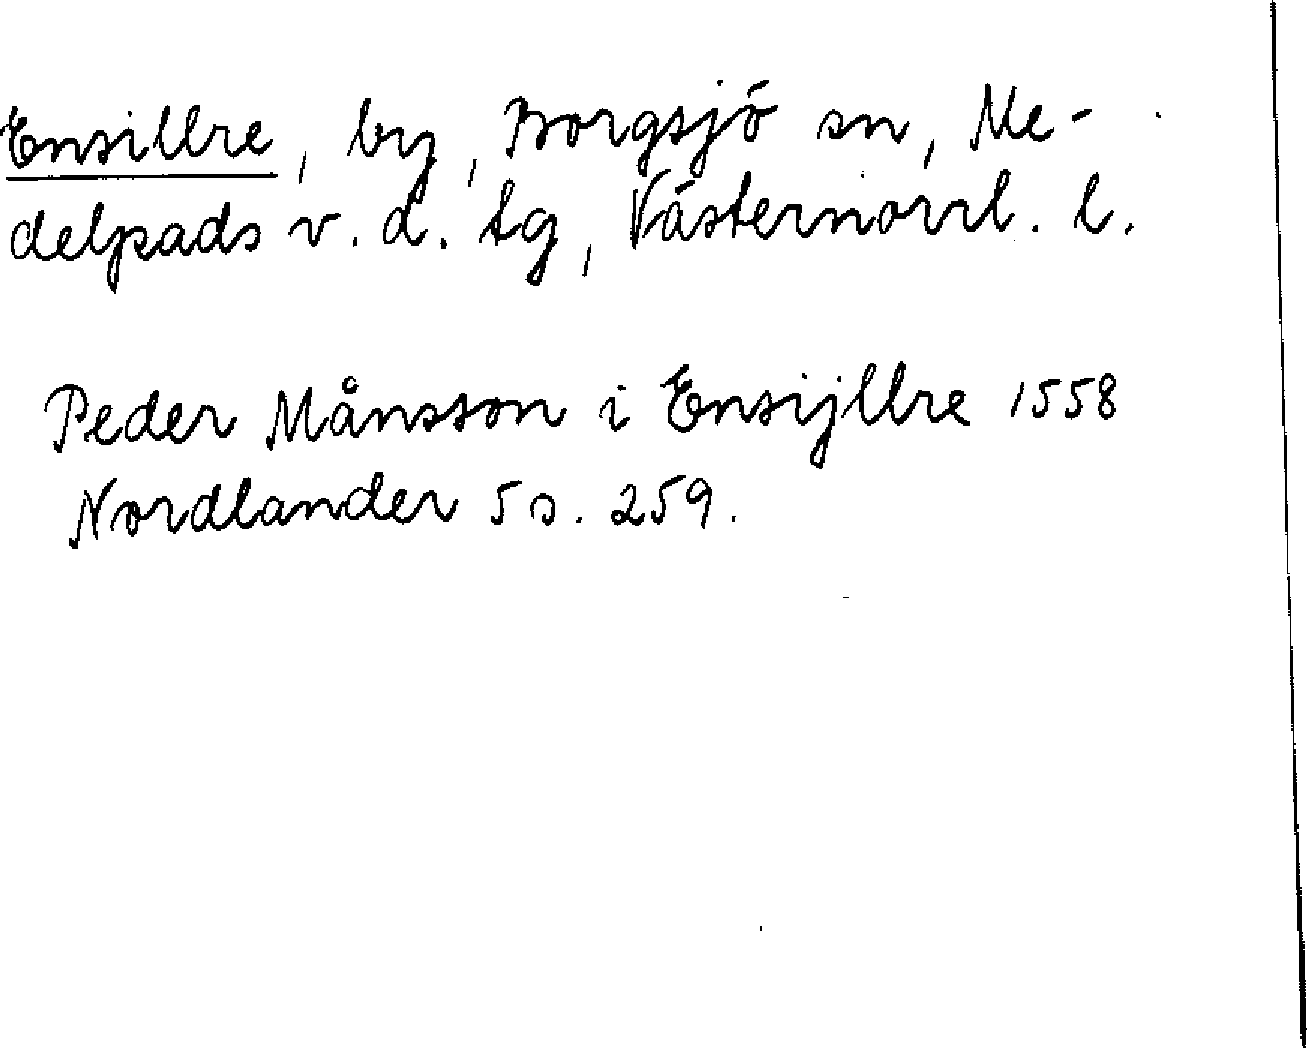 Ensillre, by, Borgsjö sn, Me-
delpads v. d. tg, Västernorrl. l.
Peder Månsson i Ensijllre 1558
Nordlander 5 s. 259.